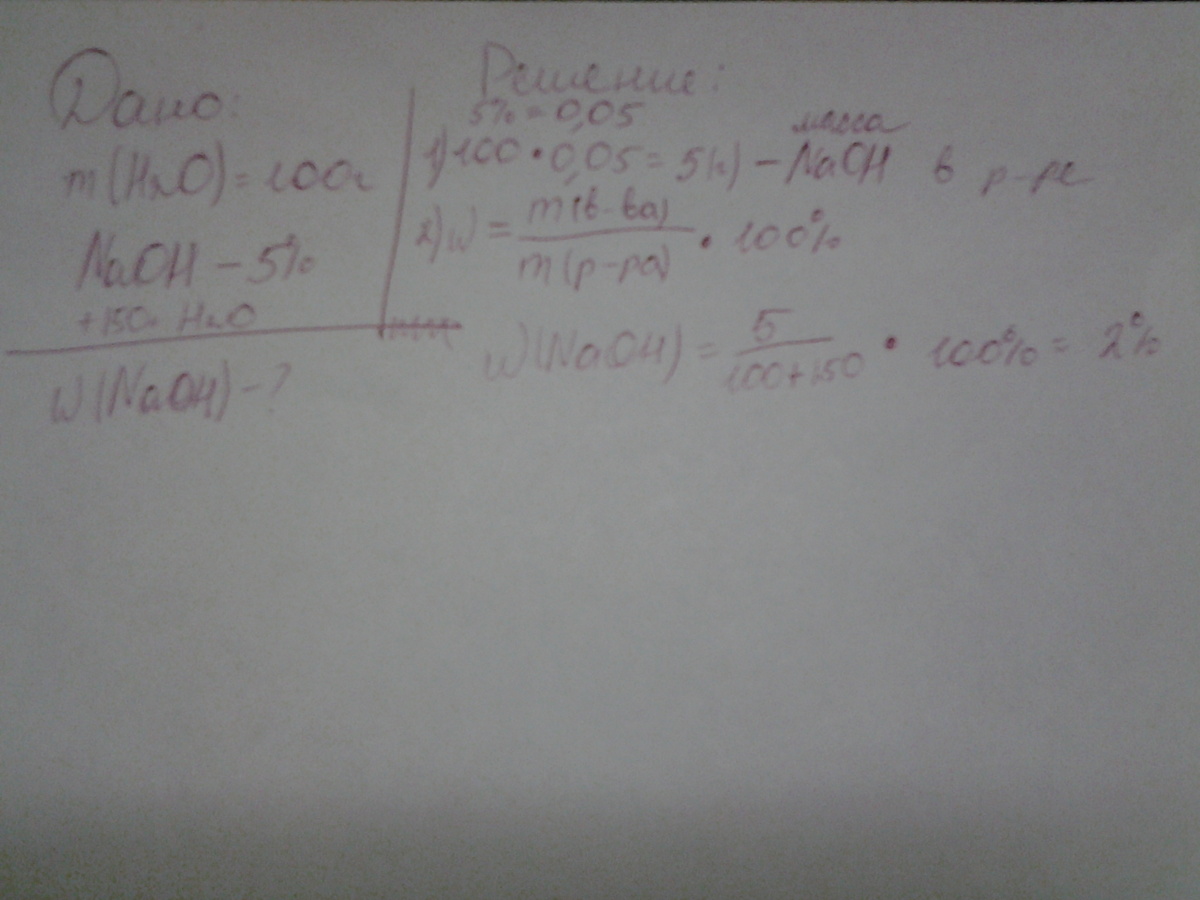 Дано:
m(H₂O)=100г
NaOH - 5%
+150г H₂O
W(NaOH)-?
Решение:
5% = 0,05
масса
1) 100 • 0,05 = 5(г) - NaOH в р-ре
2) W = m(в-ва) / m(р-ра) • 100%
W(NaOH) = 5 / 100+150 • 100% = 2%